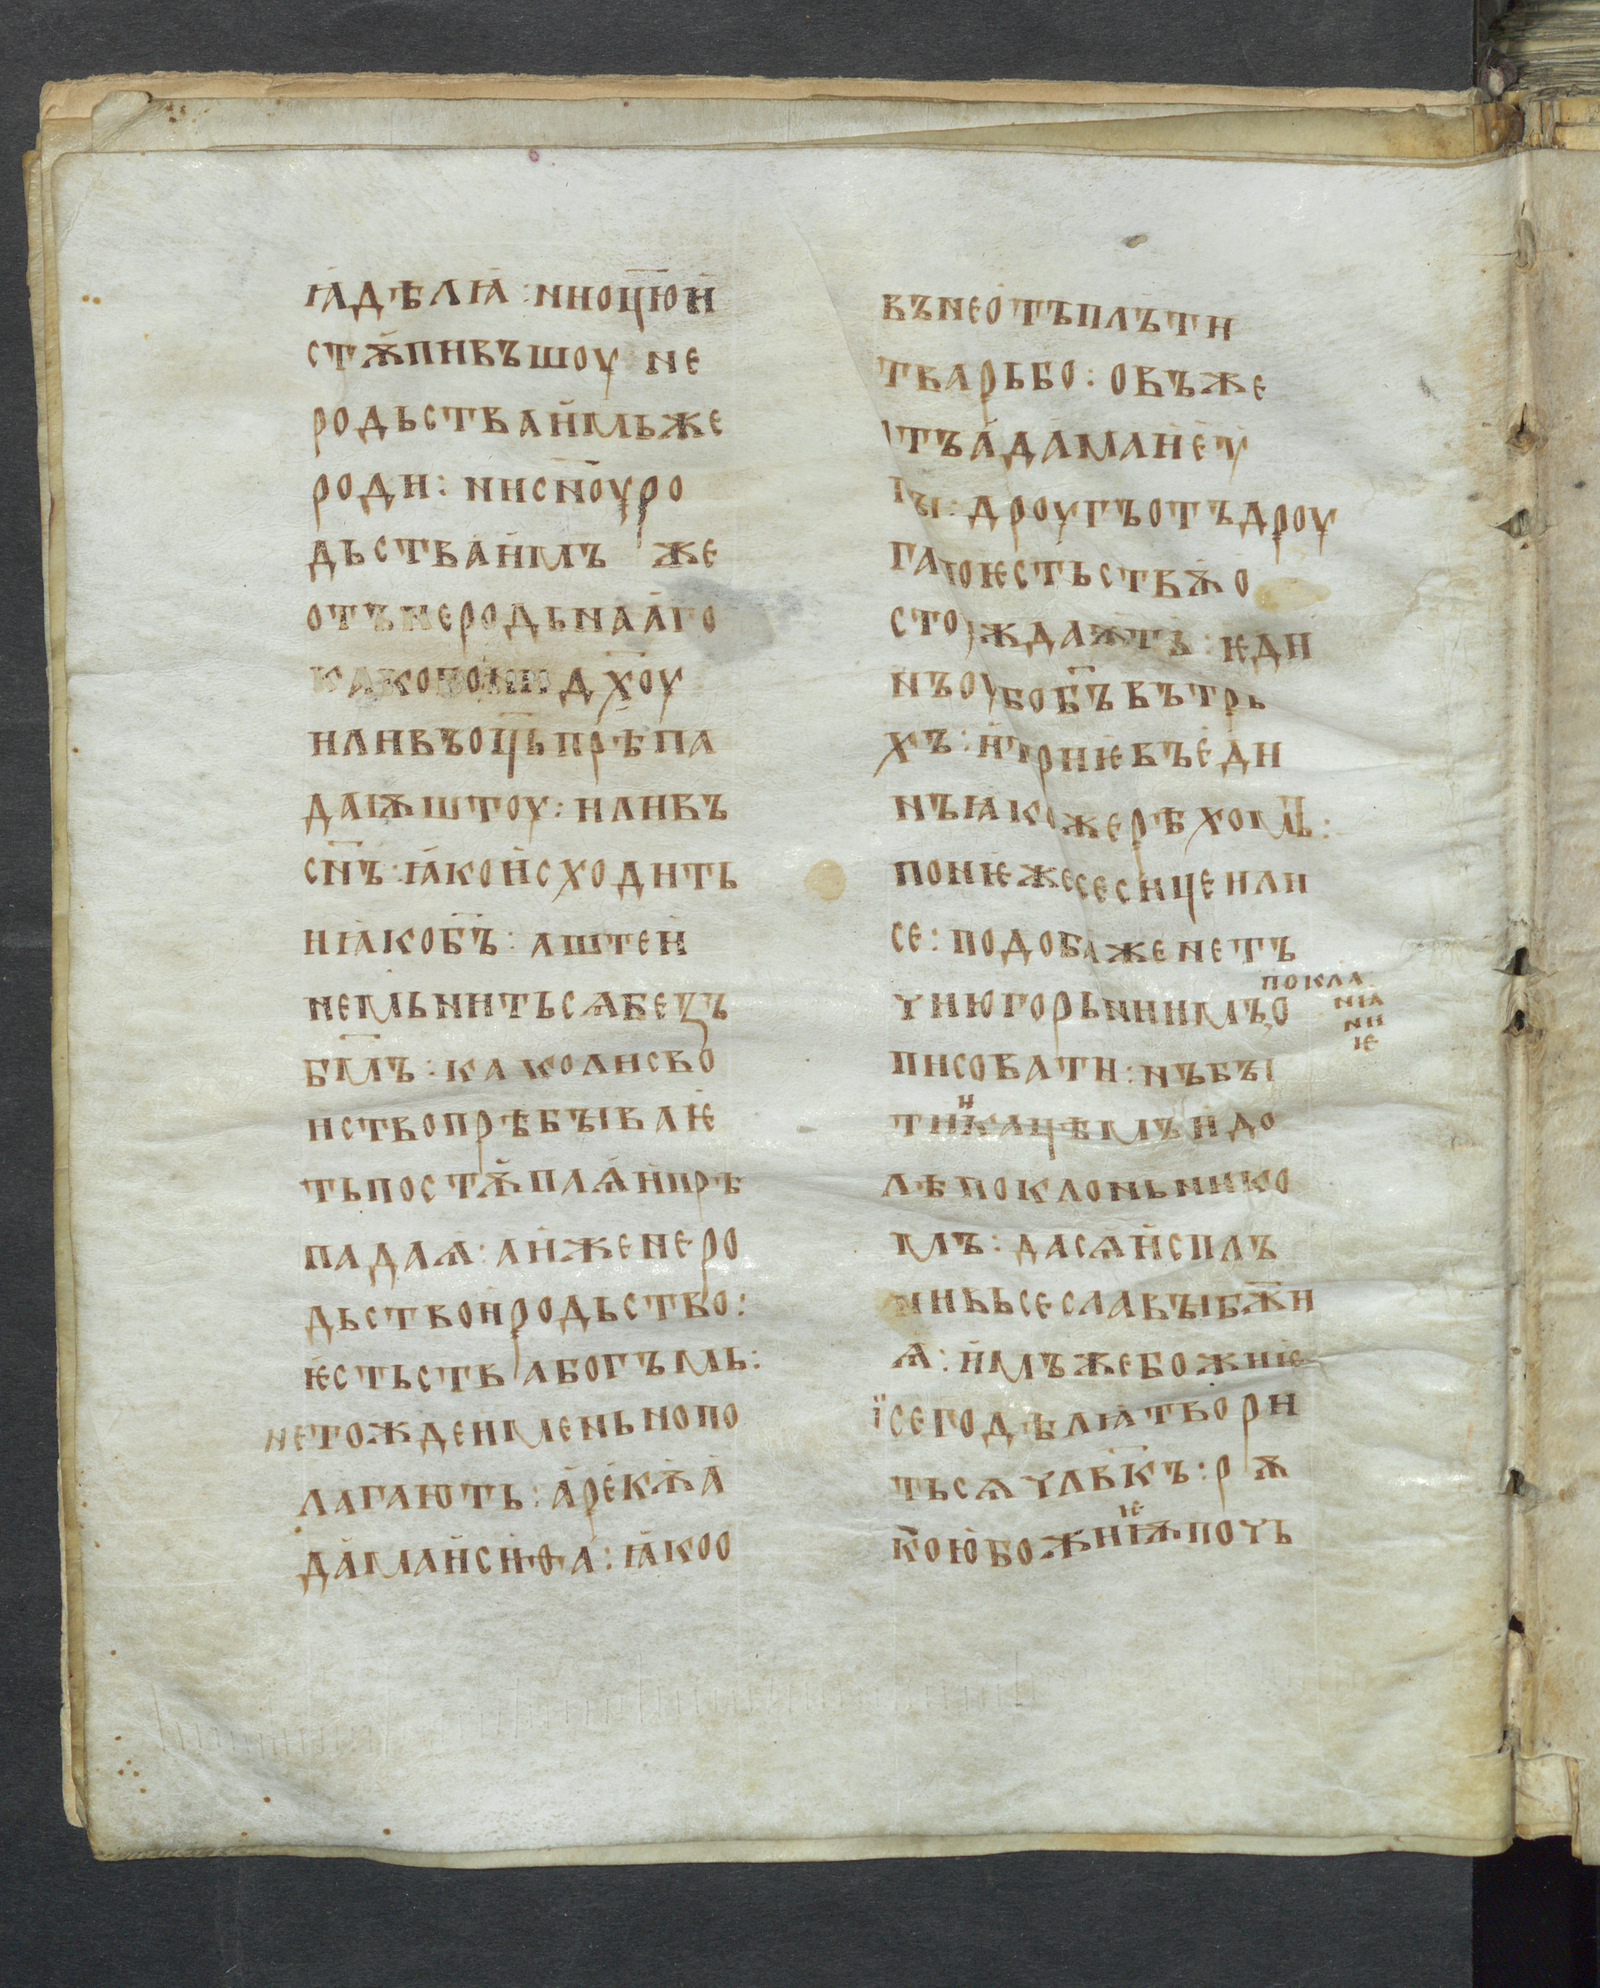 ꙗ҆дѣлꙗ҆ : ни о҃цю и҆
стѫ҆пивъшоу не
родьства и҆мьже
роди : ни сн҃оу ро
дьства и҆мъ же
отъ неродьна а҆го
како по    д҃хоу
или въ о҃ць прѣпа
даѭштоу : или въ
сн҃ъ : ꙗ҆ко и҆сходить
и ꙗ҆ко б҃ъ : аште и҆
не мьнитьсѧ беꙁъ
б҃мъ : како ли сво
иство прѣбываѥ
ть постѫ҆плѧ҆ и҆ прѣ
падаѧ : а и҆же неро
дьство и҆ родьство :
ѥ҆стьства богъмь :
не тожде имень но по
лагають : а҆ рекѫ҆ а҆
да҆ма и҆ сиѳа : ꙗ҆ко о
въ не о҆тъ плъти
тварь бо : овъ же
отъ а҆дама и҆ е҆ѵ
гы : дроугъ отъ дроу
га то ѥстьствѫ҆ о
стоꙗждаѭтъ : ѥди
нъ оубо б҃ъ въ трь
хъ : и҆ триѥ въ е҆ди
нъ ꙗкоже рѣхомъ :
понѥже се сице или
се : подобаже нетъ
покла
чню горьниимъ о
ниꙗ
ни
ѥ
писовати : нъ бы
ти и кацѣмъ и҆ до
лѣ поклоньнико
мъ : да сѧ и҆спль
ни вьсе славы бж҃и
ѧ : и҆мъже божиѥ
ї сего дѣлꙗ твори
тьсѧ члв҃къ : рѫ
кою҆ божиѥѭ почь